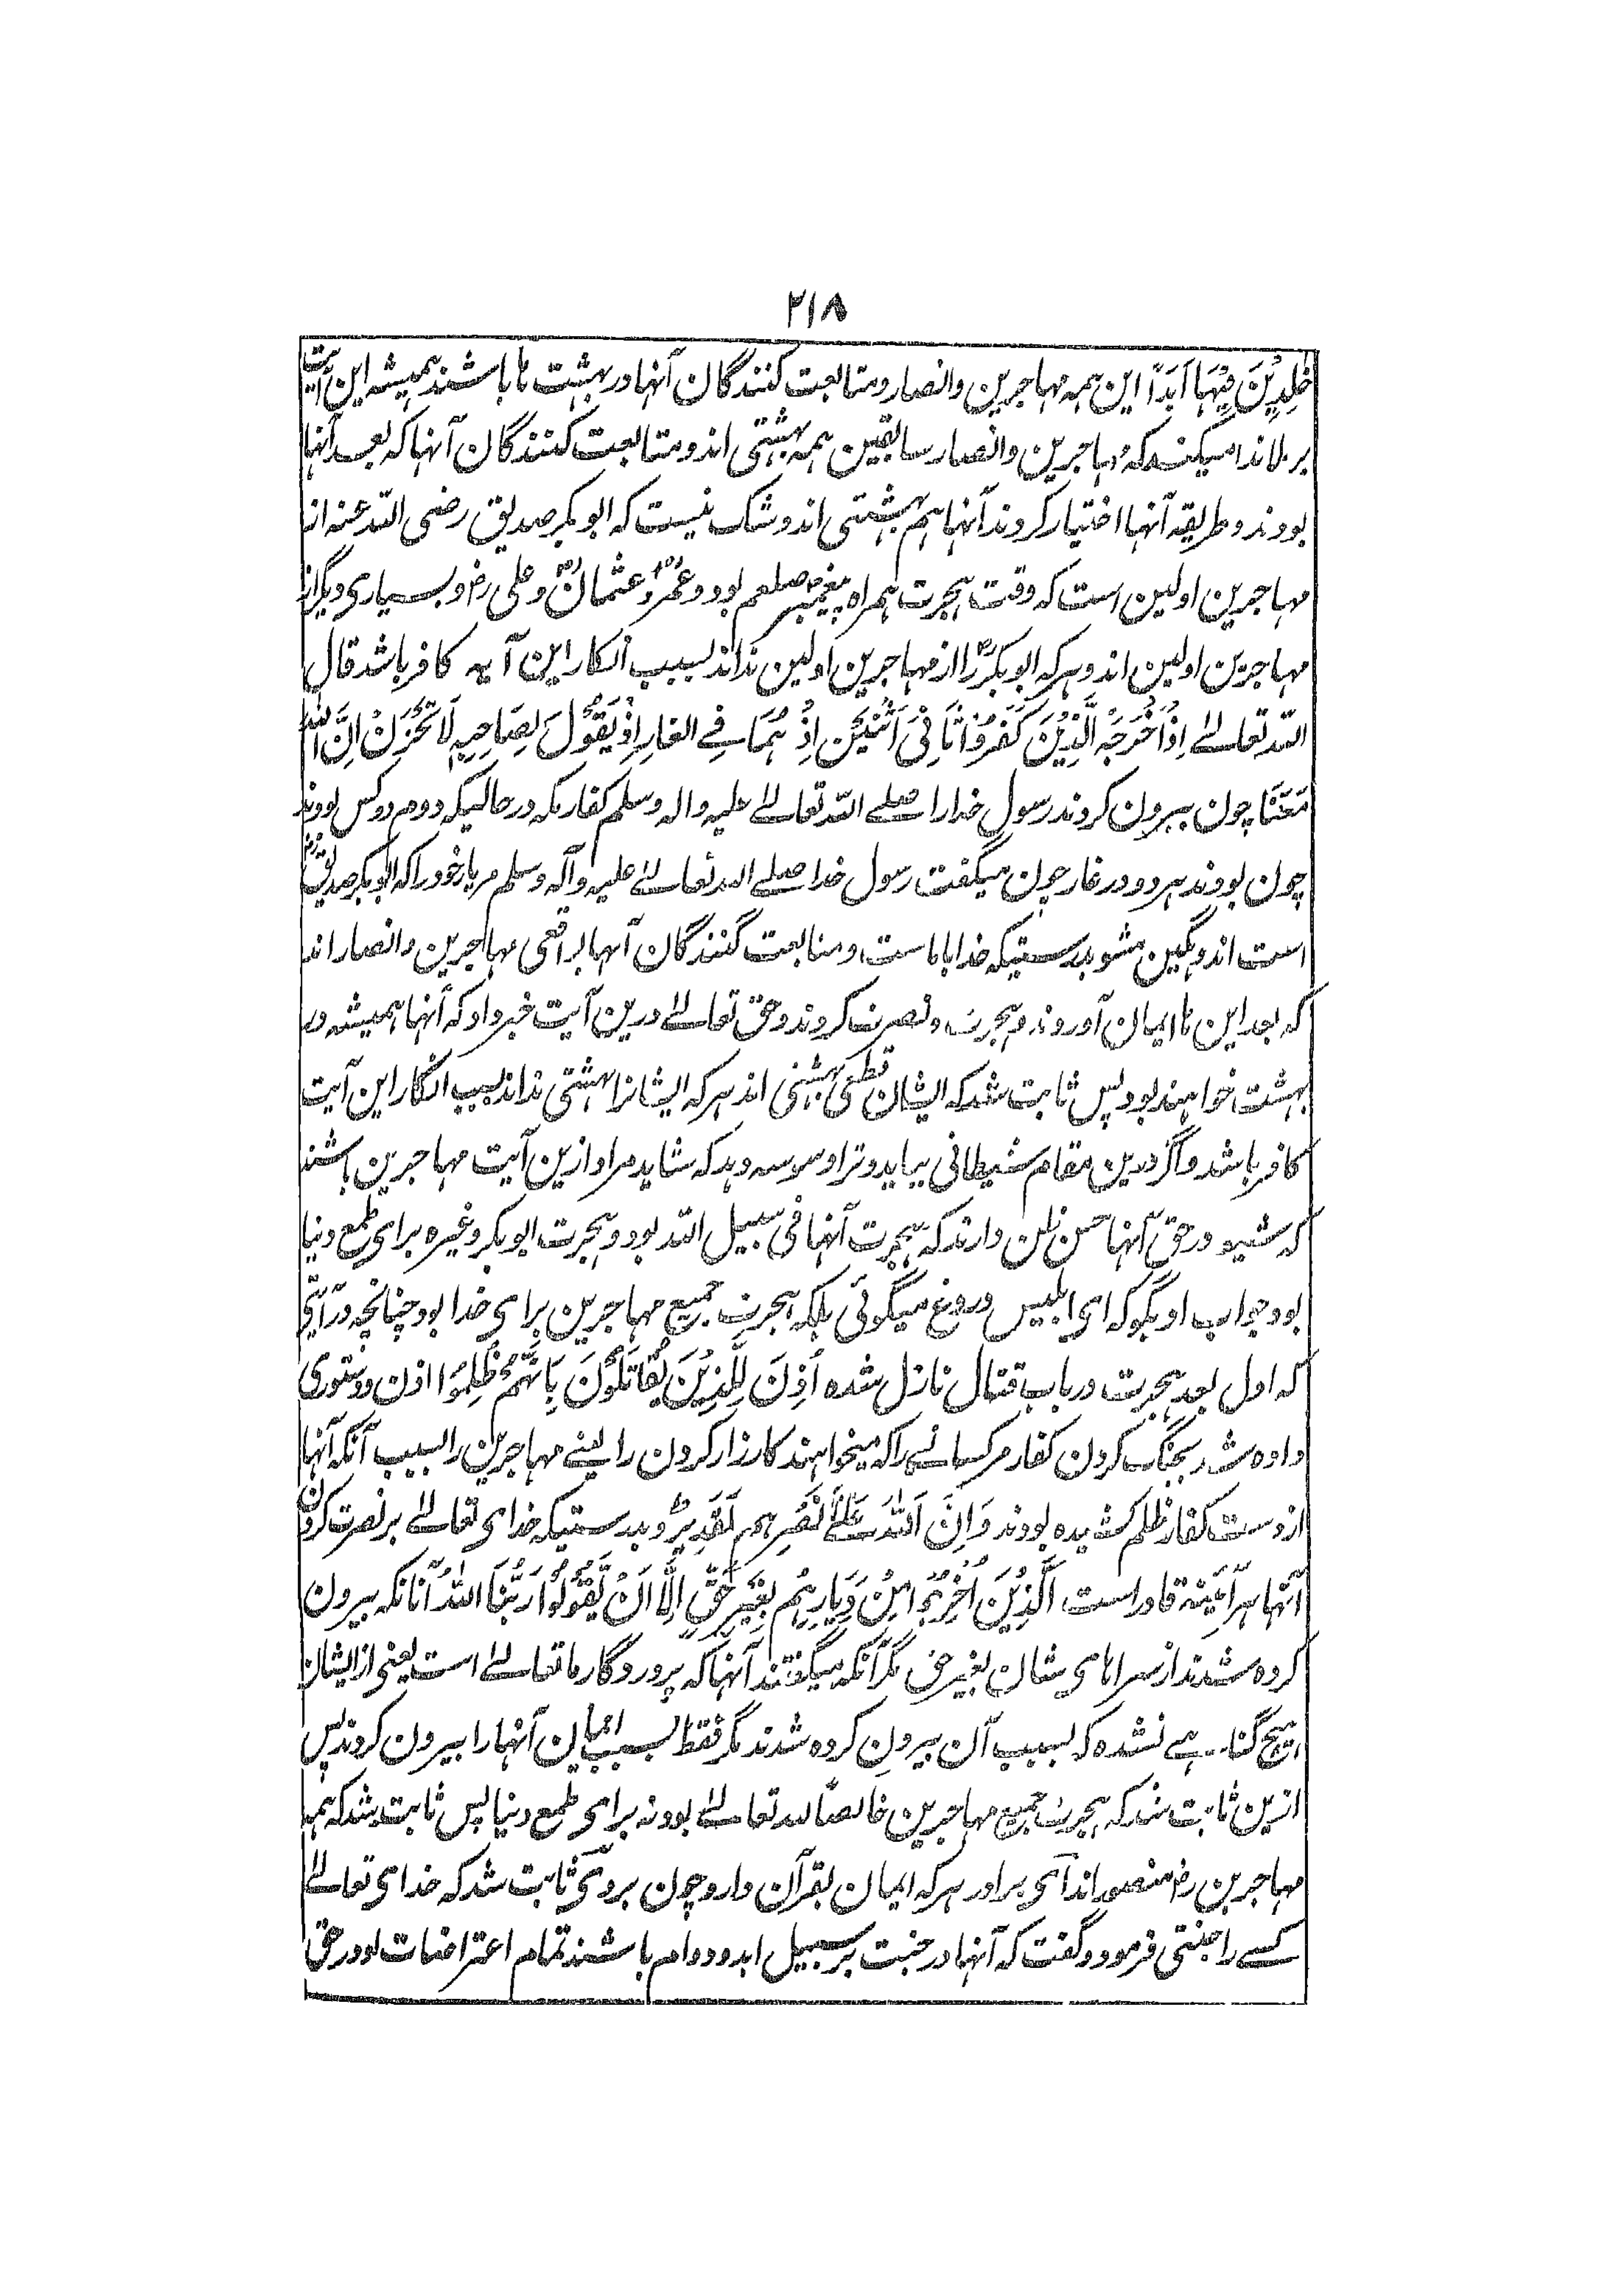 ۲۱۸
خٰلِدِیْنَ فِیْهَا اَبَدًا این همه مهاجرین وانصار ومتابعت کنندگان آنها در بهشت ها باشند همیشه این آیت
برملا ندا میکند که مهاجرین وانصار سابقین همه بهشتی اند و متابعت کنندگان آنها که بعد آنها
بودند و طریقه آنها اختیار کردند آنها هم بهشتی اند وشک نیست که ابوبکر صدیق رضی الله عنه از
مهاجرین اولین است که وقت هجرت همراه پیغمبر صلعم بود و عمرؓ و عثمانؓ و علی رض و بسیاری دیگر از
مهاجرین اولین اند و هر که ابوبکرؓ را از مهاجرین اولین نداند بسبب انکار این آیه کافر باشد قال
الله تعالےٰ اِذْ اَخْرَجَهُ الَّذِیْنَ کَفَرُوْا ثَانِیَ اثْنَیْنِ اِذْ هُمَا فِے الغَارِ اِذْ یَقُوْلُ لِصَاحِبِهٖ لَا تَحْزَنْ اِنَّ اللّٰهَ
مَعَنَا چون بیرون کردند رسول خدا را صلے الله تعالےٰ علیه واله وسلم کفار مکه در حالیکه دوم دوکس بودند
چون بودند هر دو در غار چون میگفت رسول خدا صلے الله تعالےٰ علیه وآله وسلم مر یار خود را که ابوبکر صدیق رض
است اندوهگین مشو بدرستیکه خدا با ماست ومتابعت کنندگان آنها براقعی مهاجرین وانصار اند
که بعد این ها ایمان آوردند وهجرت ونصرت کردند وحق تعالےٰ درین آیت خبر داد که آنها همیشه در
بهشت خواهند بود پس ثابت شد که ایشان قطعی بهشتی اند هر که ایشانرا بهشتی نداند بسبب انکار این آیت
کافر باشد واگر درین مقام شیطانی بیاید وترا وسوسه دهد که شاید مراد ازین آیت مهاجرین باشند
که شیعه در حق آنها حسن ظن دارند که هجرت آنها فی سبیل الله بود و هجرت ابوبکر وغیره برای طمع دنیا
بود جواب او بگو که ای ابلیس دروغ میگوئی بلکه هجرت جمیع مهاجرین برای خدا بود چنانچه در آیتی
که اول بعد هجرت در باب قتال نازل شده اُذِنَ لِلَّذِیْنَ یُقَاتَلُوْنَ بِاَنَّهُمْ ظُلِمُوْا اذن ودستوری
داده شد بجنگ کردن کفار مر کسانے را که میخواهند کارزار کردن را یعنے مهاجرین را بسبب آنکه آنها
از دست کفار ظلم کشیده بودند وَاِنَّ اللّٰهَ عَلٰے نَصْرِهِمْ لَقَدِیْرٌ وبدرستیکه خدای تعالےٰ بر نصرت کردن
آنها هرآئینه قادر است الَّذِیْنَ اُخْرِجُوْا مِنْ دِیَارِهِمْ بِغَیْرِ حَقٍّ اِلَّا اَنْ یَّقُوْلُوْا رَبُّنَا اللّٰهُ آنانکه بیرون
کرده شدند از سراهای شان بغیر حق مگر آنکه میگفتند آنها که پروردگار ما تعالےٰ است یعنی از ایشان
هیچ گنا هے نشده که بسبب آن بیرون کرده شدند مگر فقط بسبب ایمان آنها را بیرون کردند پس
ازین ثابت شد که هجرت جمیع مهاجرین خالصًا لله تعالےٰ بود نه برای طمع دنیا پس ثابت شد که همه
مهاجرین رض منصور اند ای برادر هر که ایمان بقرآن دارد چون بروی ثابت شد که خدای تعالےٰ
کسے را جنتی فرمود و گفت که آنها در جنت بر سبیل ابد ودوام باشند تمام اعتراضات او در حق